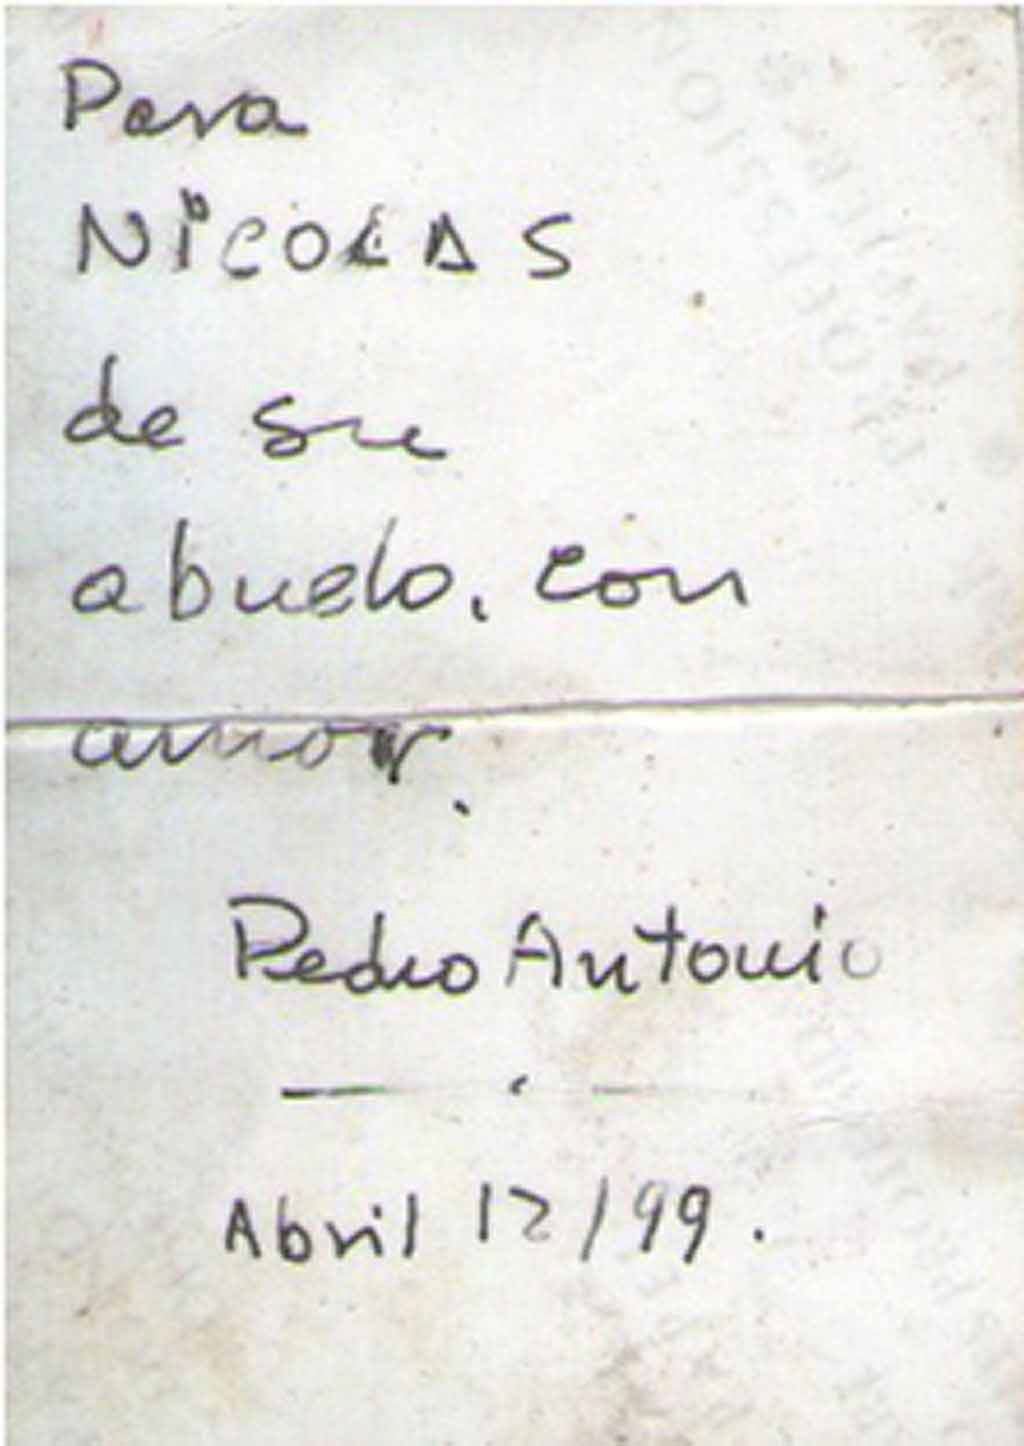 Para
NiCOLAS
de su
abuelo. con
amor.
Pedro Antonio
Abril 12/99.